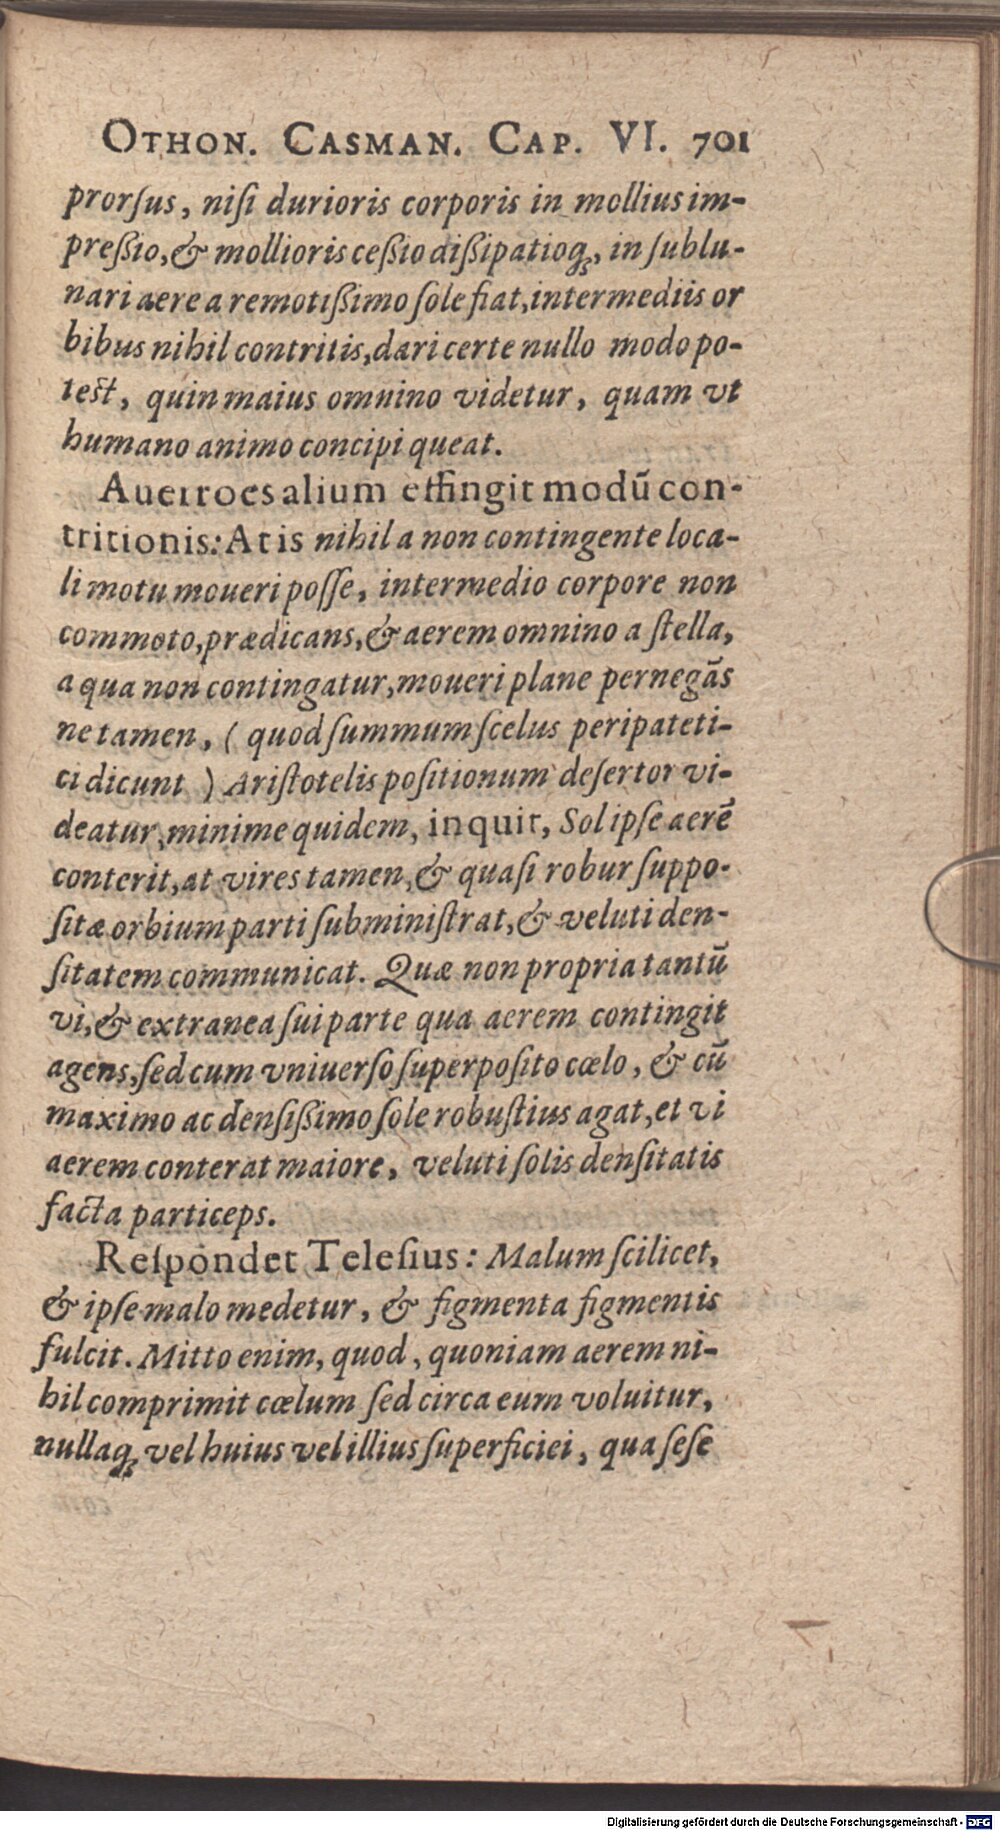 OTHON. CASMAN. CAP. VI. 701
prorſus, niſi durioris corporis in mollius im-
preßio, & mollioris ceßio dißipatioq́;, in ſublu-
nari aere a remotißimo ſole fiat, intermediis or
bibus nihil contritis, dari certe nullo modo po-
test, quin maius omnino videtur, quam vt
humano animo concipi queat.
Auerroes alium effingit modū con-
tritionis: At is nihil a non contingente loca-
li motu moueri poſſe, intermedio corpore non
commoto, prædicans, & aerem omnino a ſtella,
a qua non contingatur, moueri plane pernegās
ne tamen, ( quod ſummum ſcelus peripateti-
ci dicunt ) Ariſtotelis poſitionum deſertor vi-
deatur, minime quidem, inquit, Sol ipſe aerē
conterit, at vires tamen, & quaſi robur ſuppo-
ſitæ orbium parti ſubminiſtrat, & veluti den-
ſitatem communicat. Quæ non propria tantū
vi, & extranea ſui parte qua aerem contingit
agens, ſed cum vniuerſo ſuperpoſito cœlo, & cū
maximo ac denſißimo ſole robuſtius agat, et vi
aerem conterat maiore, veluti ſolis denſitatis
facta particeps.
Reſpondet Teleſius: Malum ſcilicet,
& ipſe malo medetur, & figmenta figmentis
fulcit. Mitto enim, quod, quoniam aerem ni-
hil comprimit cœlum ſed circa eum voluitur,
nullaq́; vel huius vel illius ſuperficiei, qua ſeſe
Digitalisierung gefördert durch die Deutsche Forschungsgemeinschaft - DFG